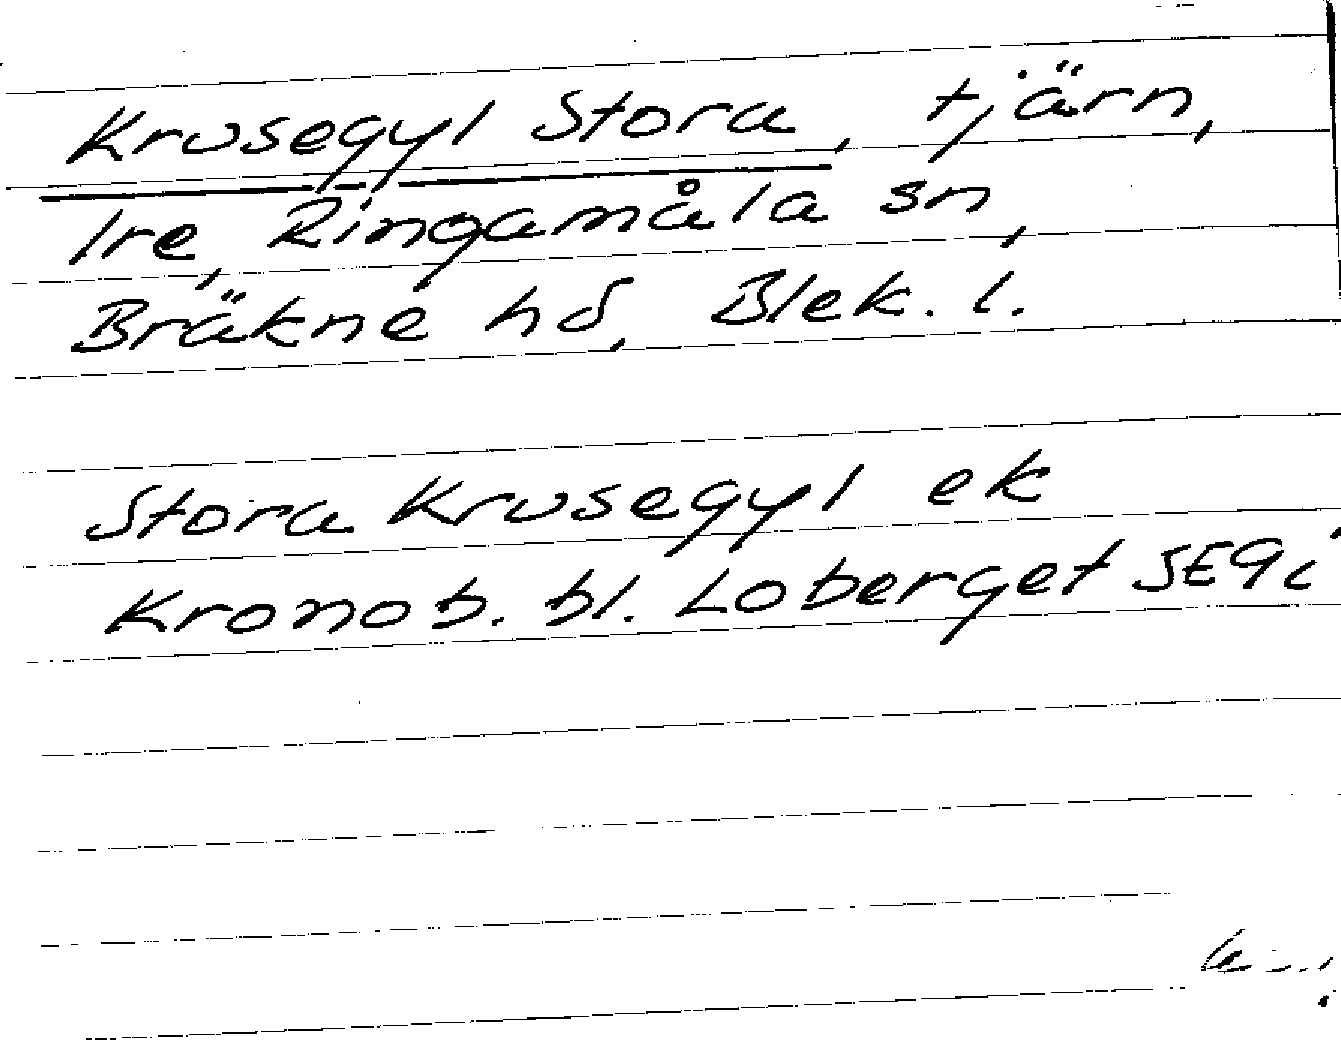 Krusegyl Stora, tjärn,
Ire, Ringamåla sn,
Bräkne hd, Blek. l.
Stora Krusegyl ek
Kronob. bl. Loberget